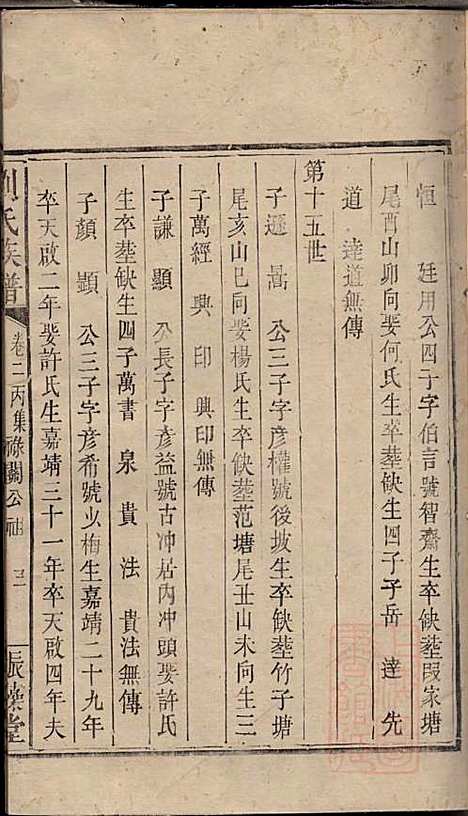 恒 廷用公四子字伯言號智齋生卒缺塟叚家塘
尾酉山卯向娶何氏生卒塟缺生四子子岳 達 先
道 達道無傳
第十五世
子遜 勗 公三子字彥權號後坡生卒缺塟竹子塘
尾亥山巳向娶楊氏生卒缺塟范塘尾丑山未向生三
子萬經 興 印 興印無傳
子謙 顯 公長子字彥益號古冲居內冲頭娶許氏
生卒塟缺生四子萬書 泉 貴 法 貴法無傳
子顏 顯 公三子字彥希號少梅生嘉靖二十九年
卒天啟二年娶許氏生嘉靖三十一年卒天啟四年夫
劉氏族譜 卷二丙集 祿閣公